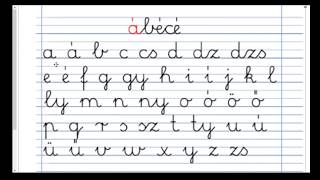 ábécé
a á b c cs d dz dzs
e é f g gy h i í j k l
ly m n ny o ó ö ő
p q r s sz t ty u ú
ü ű v w x y z zs